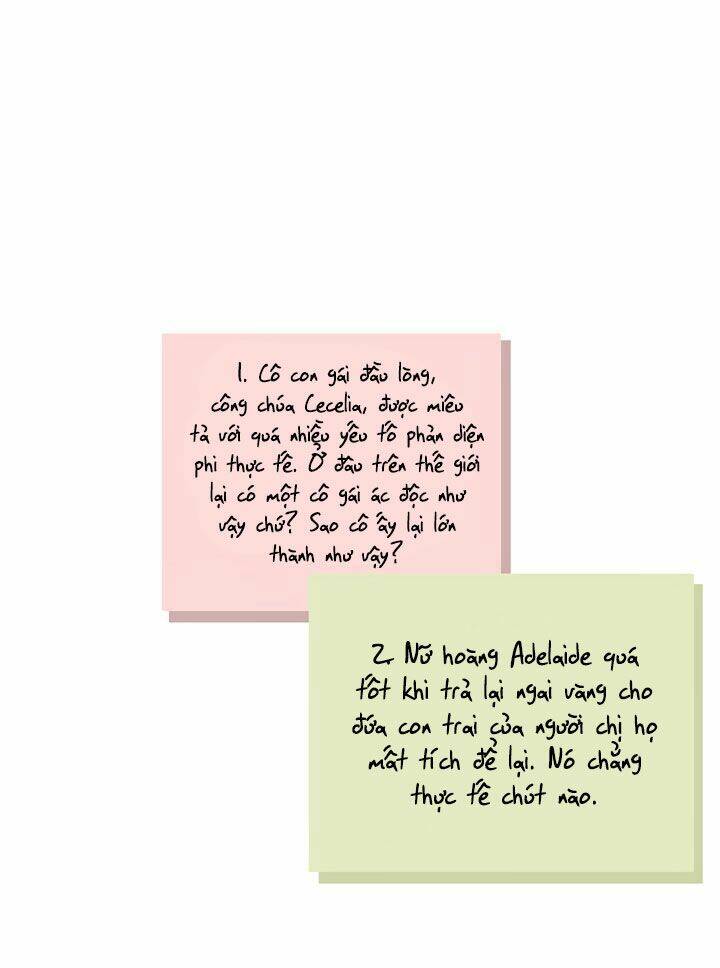 1. Cô con gái đầu lòng,
công chúa Cecelia, được miêu
tả với quá nhiều yếu tố phản diện
phi thực tế. Ở đâu trên thế giới
lại có một cô gái ác độc như
vậy chứ? Sao cô ấy lại lớn
thành như vậy?
2. Nữ hoàng Adelaide quá
tốt khi trả lại ngai vàng cho
đứa con trai của người chị họ
mất tích để lại. Nó chẳng
thực tế chút nào.